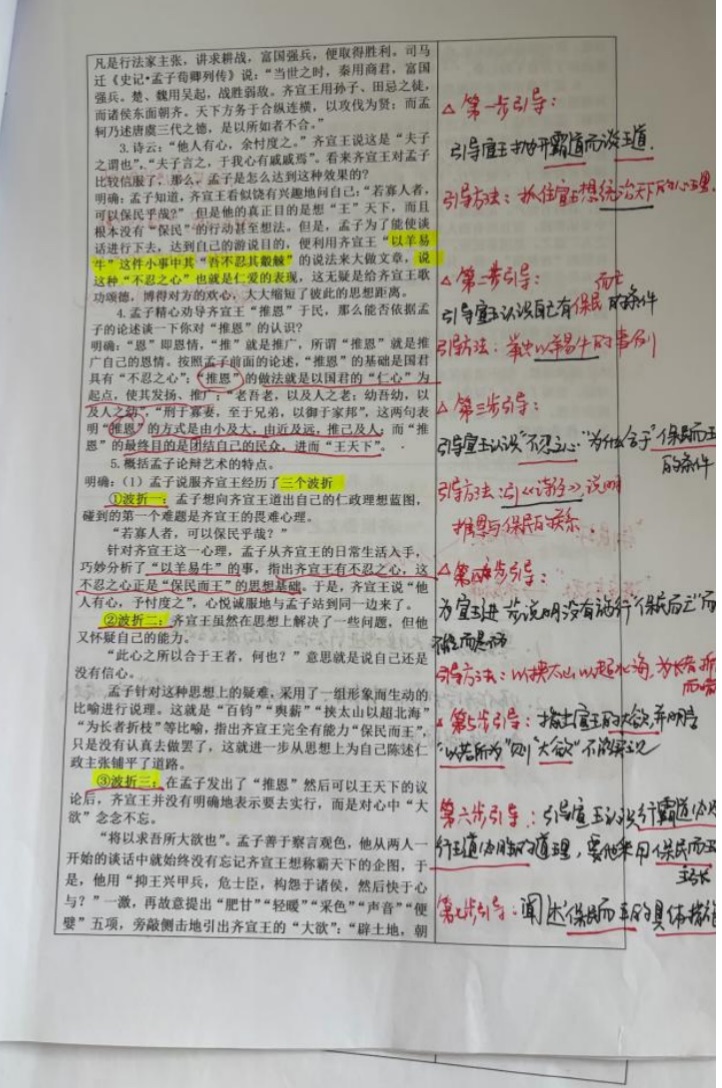 凡是行法家主张，讲求耕战，富国强兵，便取得胜利。司马
迁《史记•孟子荀卿列传》说：“当世之时，秦用商君，富国
强兵。楚、魏用吴起，战胜弱敌。齐宣王用孙子、田忌之徒，
而诸侯东面朝齐。天下方务于合纵连横，以攻伐为贤；而孟
轲乃述唐虞三代之德，是以所如者不合。”
3.诗云：“他人有心，余忖度之。”齐宣王说这是“夫子
之谓也”，“夫子言之，于我心有戚戚焉”。看来齐宣王对孟子
比较信服了，那么，孟子是怎么达到这种效果的？
明确：孟子知道，齐宣王看似饶有兴趣地问自己：“若寡人者，
可以保民乎哉？” 但是他的真正目的是想“王”天下，而且
根本没有“保民”的行动甚至想法。但是，孟子为了能使谈
话进行下去，达到自己的游说目的，便利用齐宣王“以羊易
牛”这件小事中其“吾不忍其觳觫”的说法来大做文章，说
这种“不忍之心”也就是仁爱的表现，这无疑是给齐宣王歌
功颂德，博得对方的欢心，大大缩短了彼此的思想距离。
4.孟子精心劝导齐宣王“推恩”于民，那么能否依据孟
子的论述谈一下你对“推恩”的认识？
明确：“恩”即恩情，“推”就是推广，所谓“推恩”就是推
广自己的恩情。按照孟子前面的论述，“推恩”的基础是国君
具有“不忍之心”；“推恩”的做法就是以国君的“仁心”为
起点，使其发扬、推广：“老吾老，以及人之老；幼吾幼，以
及人之幼”，“刑于寡妻，至于兄弟，以御于家邦”，这两句表
明“推恩”的方式是由小及大，由近及远，推己及人；而“推
恩”的最终目的是团结自己的民众，进而“王天下”。
5.概括孟子论辩艺术的特点。
明确：（1）孟子说服齐宣王经历了三个波折
①波折一：孟子想向齐宣王道出自己的仁政理想蓝图，
碰到的第一个难题是齐宣王的畏难心理。
“若寡人者，可以保民乎哉？”
针对齐宣王这一心理，孟子从齐宣王的日常生活入手，
巧妙分析了“以羊易牛”的事，指出齐宣王有不忍之心，这
不忍之心正是“保民而王”的思想基础。于是，齐宣王说“他
人有心，予忖度之”，心悦诚服地与孟子站到同一边来了。
②波折二：齐宣王虽然在思想上解决了一些问题，但他
又怀疑自己的能力。
“此心之所以合于王者，何也？”意思就是说自己还是
没有信心。
孟子针对这种思想上的疑难，采用了一组形象而生动的
比喻进行说理。这就是“百钧”“舆薪”“挟太山以超北海”
“为长者折枝”等比喻，指出齐宣王完全有能力“保民而王”，
只是没有认真去做罢了，这就进一步从思想上为自己陈述仁
政主张铺平了道路。
③波折三：在孟子发出了“推恩”然后可以王天下的议
论后，齐宣王并没有明确地表示要去实行，而是对心中“大
欲”念念不忘。
“将以求吾所大欲也”。孟子善于察言观色，他从两人一
开始的谈话中就始终没有忘记齐宣王想称霸天下的企图，于
是，他用“抑王兴甲兵，危士臣，构怨于诸侯，然后快于心
与？”一激，再故意提出“肥甘”“轻暖”“采色”“声音”“便
嬖”五项，旁敲侧击地引出齐宣王的“大欲”：“辟土地，朝
△第一步引导：
引导宣王抛开霸道而谈王道.
引导方法：抓住宣王想统治天下的心理.
△第二步引导：
而亡
引导宣王认识自己有保民的条件
引导方法：举出以羊易牛的事例
△第三步引导：
引导宣王认识“不忍之心”为什么合于“保民而王
的条件
引导方法：引《诗经》说明
推恩与保民的关系.
△第四步引导：
为宣王进一步说明没有施行“保民而亡”而
不能而是不为
引导方法：以挟太山以超北海，为长者折
△第5步引导：指出宣王的大欲，并明告
“以若所为”则“大欲”不能实现
第六步引导：引导宣王认识行霸道
行王道 的道理，要他采用保民而王
第七步引导：阐述保民而王的具体措施